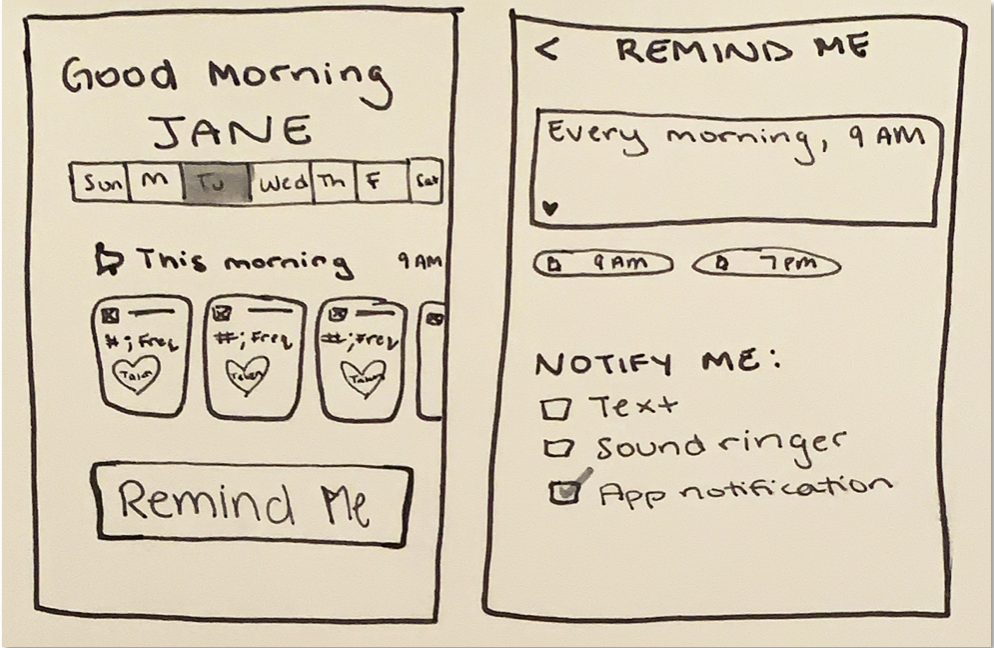 Good Morning
JANE
Sun M Tu Wed Th F Sat
This morning 9 AM
#; Freq #; Freq #; Freq
Taken Taken Taken
Remind Me
< REMIND ME
Every morning, 9 AM
9 AM 7 pm
NOTIFY ME:
Text
Sound ringer
App notification